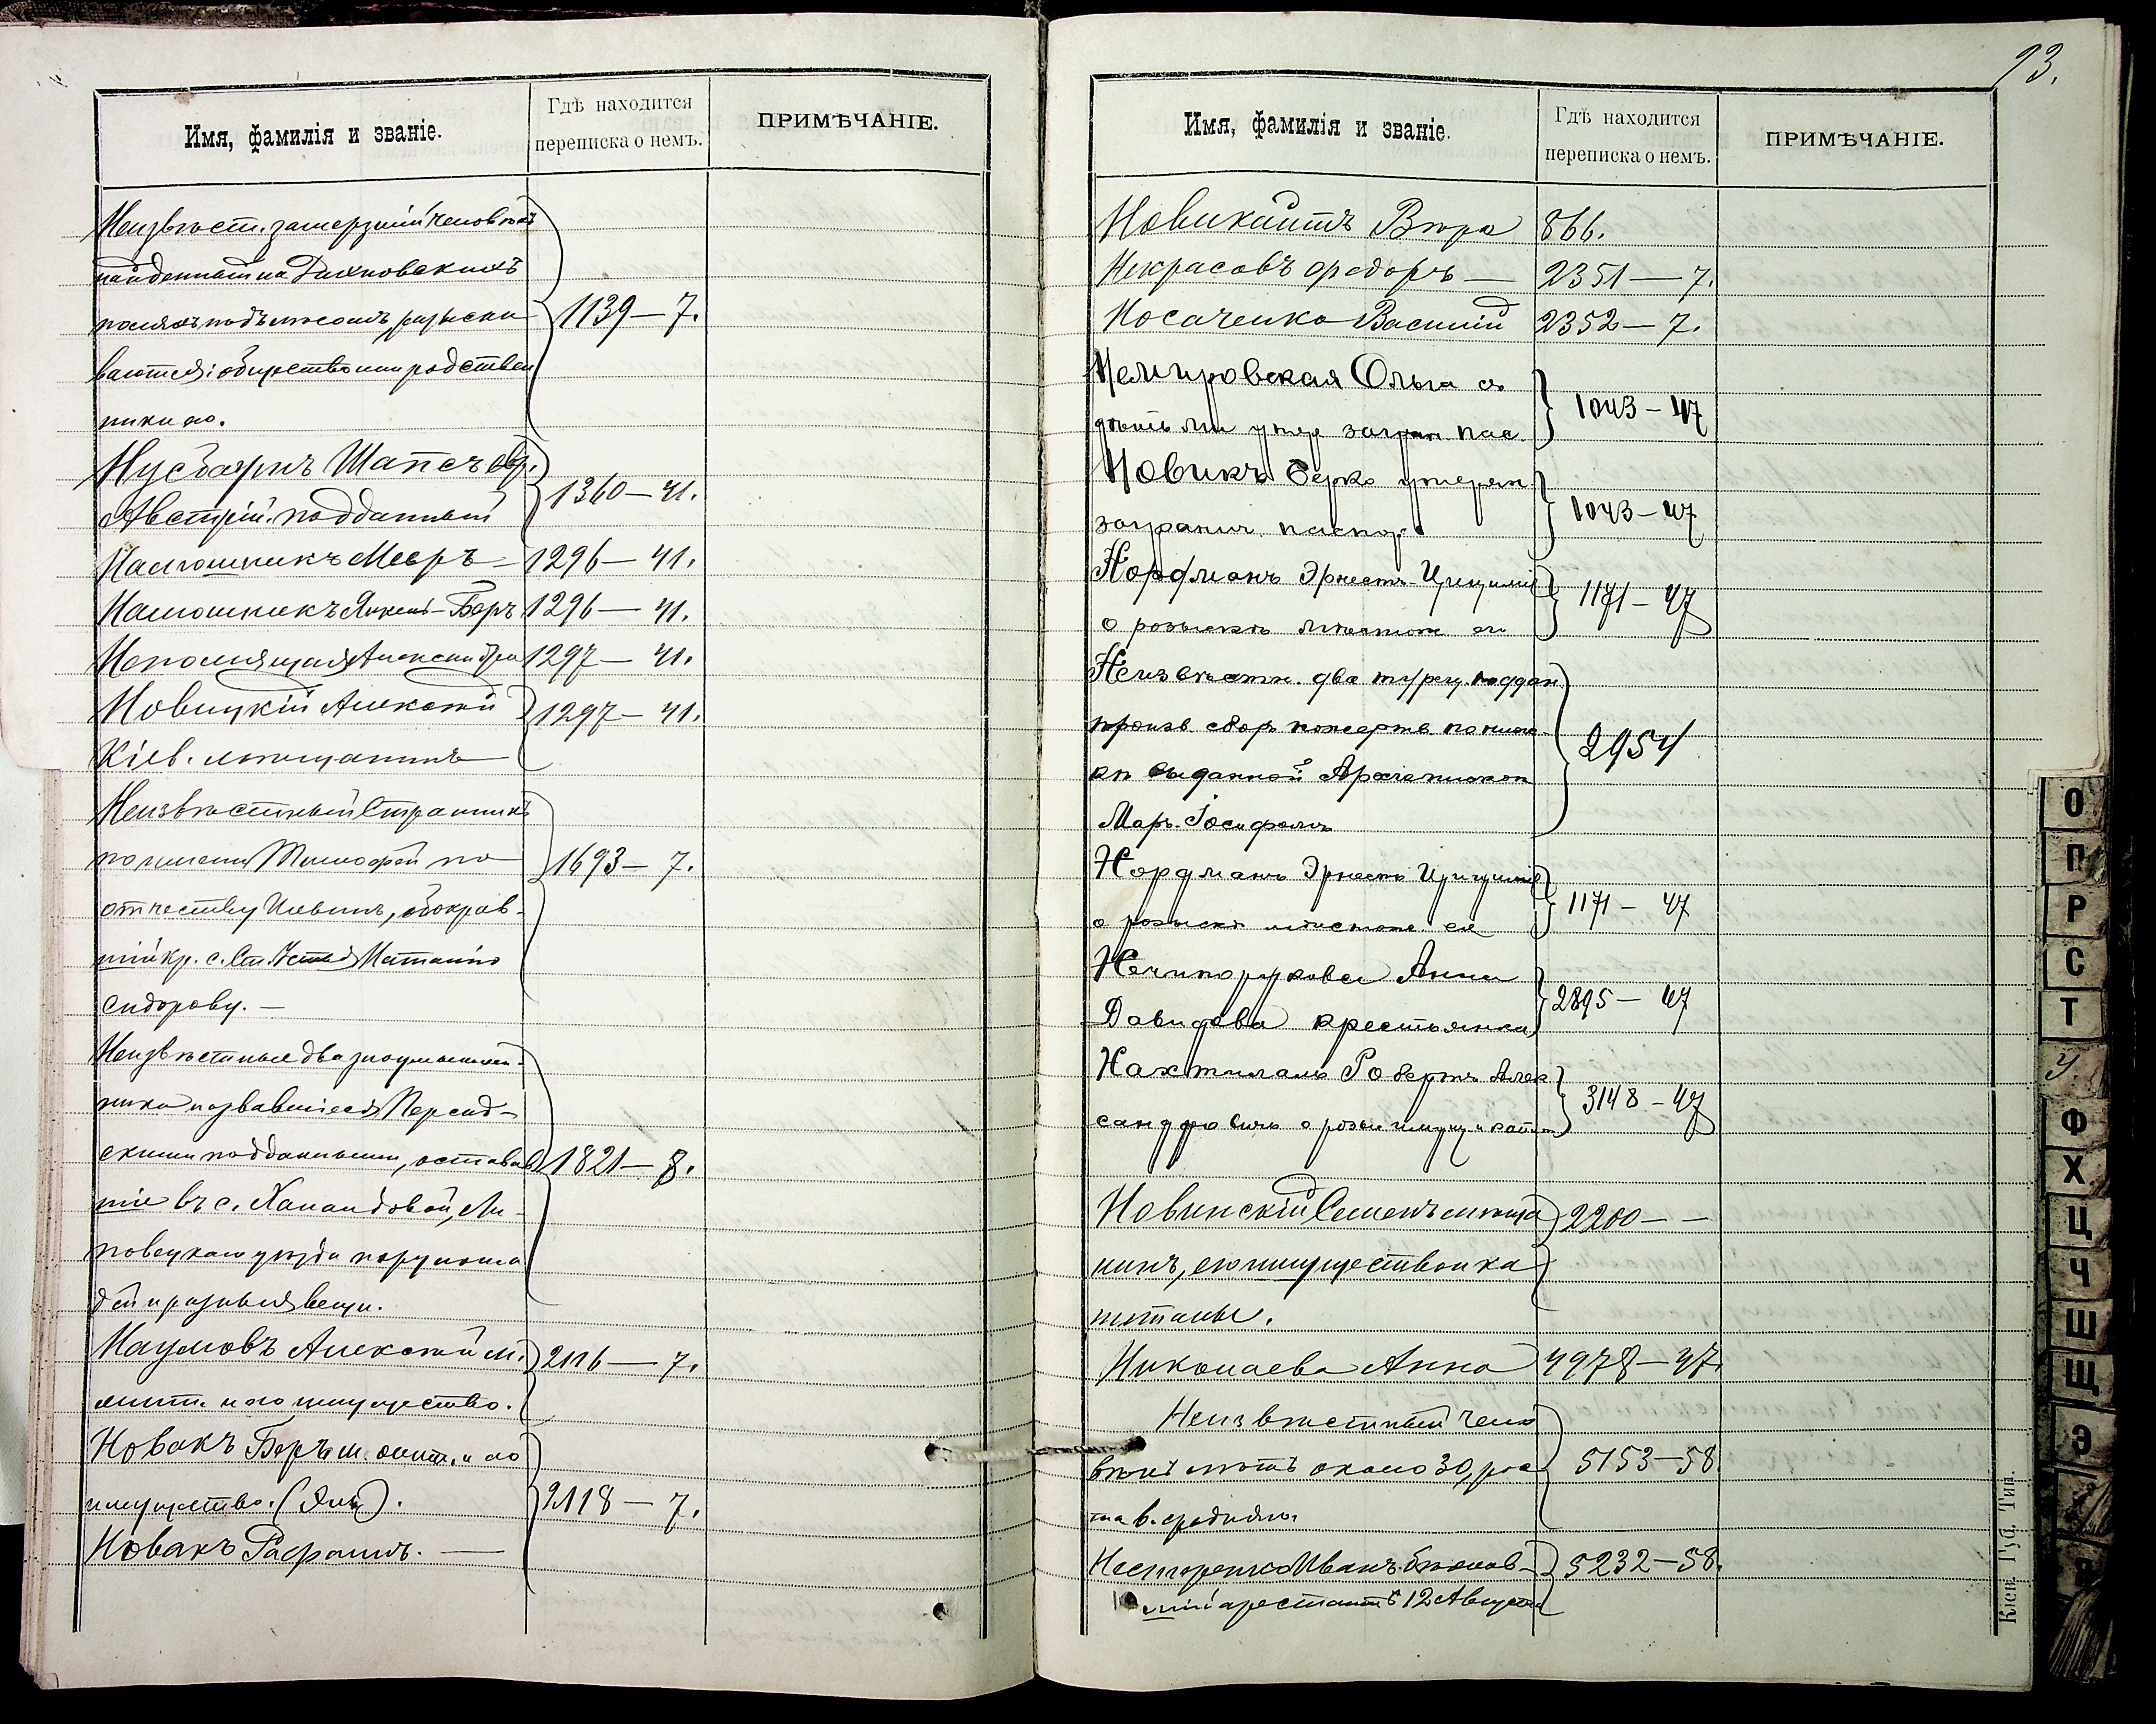 93.
Имя, фамилія и званіе.
Гдѣ находится
переписка о немъ.
ПРИМѢЧАНІЕ.
Неизвѣст. замерзшій человѣкъ
найденный на Дахновскихъ
поляхъ подъ лѣсомъ, разыски
ваются: общество или родствен
ники его.
1139 — 7.
Нусбаумъ Шапсъ евр.
Австрій. подданный
1360 — 41.
Налюшникъ Мееръ —
1296 — 41.
Налюшникъ Янкель-Беръ
1296 — 41.
Александра
1297 — 41.
Новицкій Алексѣй
Кіев. мѣщанинъ —
1297 — 41.
Неизвѣстный Странникъ
по имени Тимофей по
отчеству обокрав-
шій кр. с.
Сидорову. —
1693 — 7.
Неизвѣстные два злоумышлен-
ника назвавшіеся Персид-
скими подданными, оставав
шіе въ с. Ли-
повецкаго уѣзда
и разныя вещи.
1821 — 8.
Наумовъ Алексѣй м.
и его имущество.
2116 — 7.
Новакъ Беръ м. и его
имущество.
Новакъ —
2118 — 7.
Имя, фамилія и званіе.
Гдѣ находится
переписка о немъ.
ПРИМѢЧАНІЕ.
Новикайтъ Вѣра
866.
Некрасовъ Ѳедоръ —
2351 — 7.
Носаченко Василій
2352 — 7.
Немировская Ольга съ
загран. пас.
1043 — 47
Новикъ Берко утерян
загранич. паспор.
1043 — 47
Нордманъ Эрнестъ
о розыскѣ
1171 — 47
Неизвѣстн. два турец. поддан.
произв. сборъ пожертв. по книж-
кѣ выданной Архіепископ
Мар. Іосифомъ
2954
Нордманъ Эрнестъ
о розыскѣ
1171 — 47
Нечипорукова Анна
Давидова крестьянка
2895 — 47
Робертъ Алек
сандровичъ о розыс. имущ. и капит
3148 — 47
Новинскій Семенъ мѣща
нинъ, его имущество и ка
питалы.
2200 — —
Николаева Анна
4978 — 47.
Неизвѣстный чело
вѣкъ лѣтъ около 30, рос
та в.
5153 — 58.
Нестеренко Иванъ бѣжав-
шій арестантъ 12 Августа
5232 — 58.
Кіев. Губ. Тип.
О
П
Р
С
Т
У.
Ф
Х
Ц
Ч
Ш
Щ
Э
Я